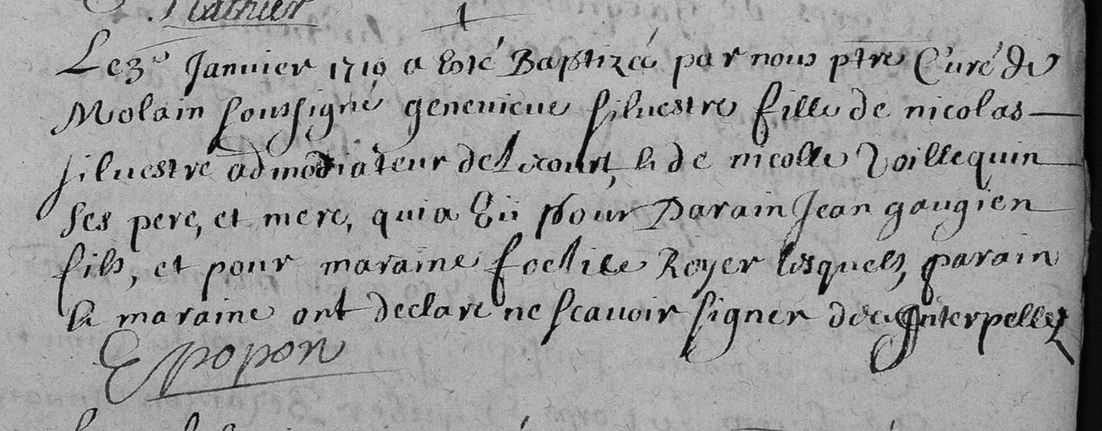 Mathier
Le 3e Janvier 1719 a esté Baptizée par nous ptre Curé de
Molain soussigné genevieve silvestre fille de nicolas
silvestre admodiateur de Licourt, & de nicolle Voillequin
ses pere, et mere, qui a Eü pour Parain Jean gaugien
fils, et pour maraine Royer lesquels, parain
& maraine ont declaré ne scavoir signer de ce Interpellez
E popon